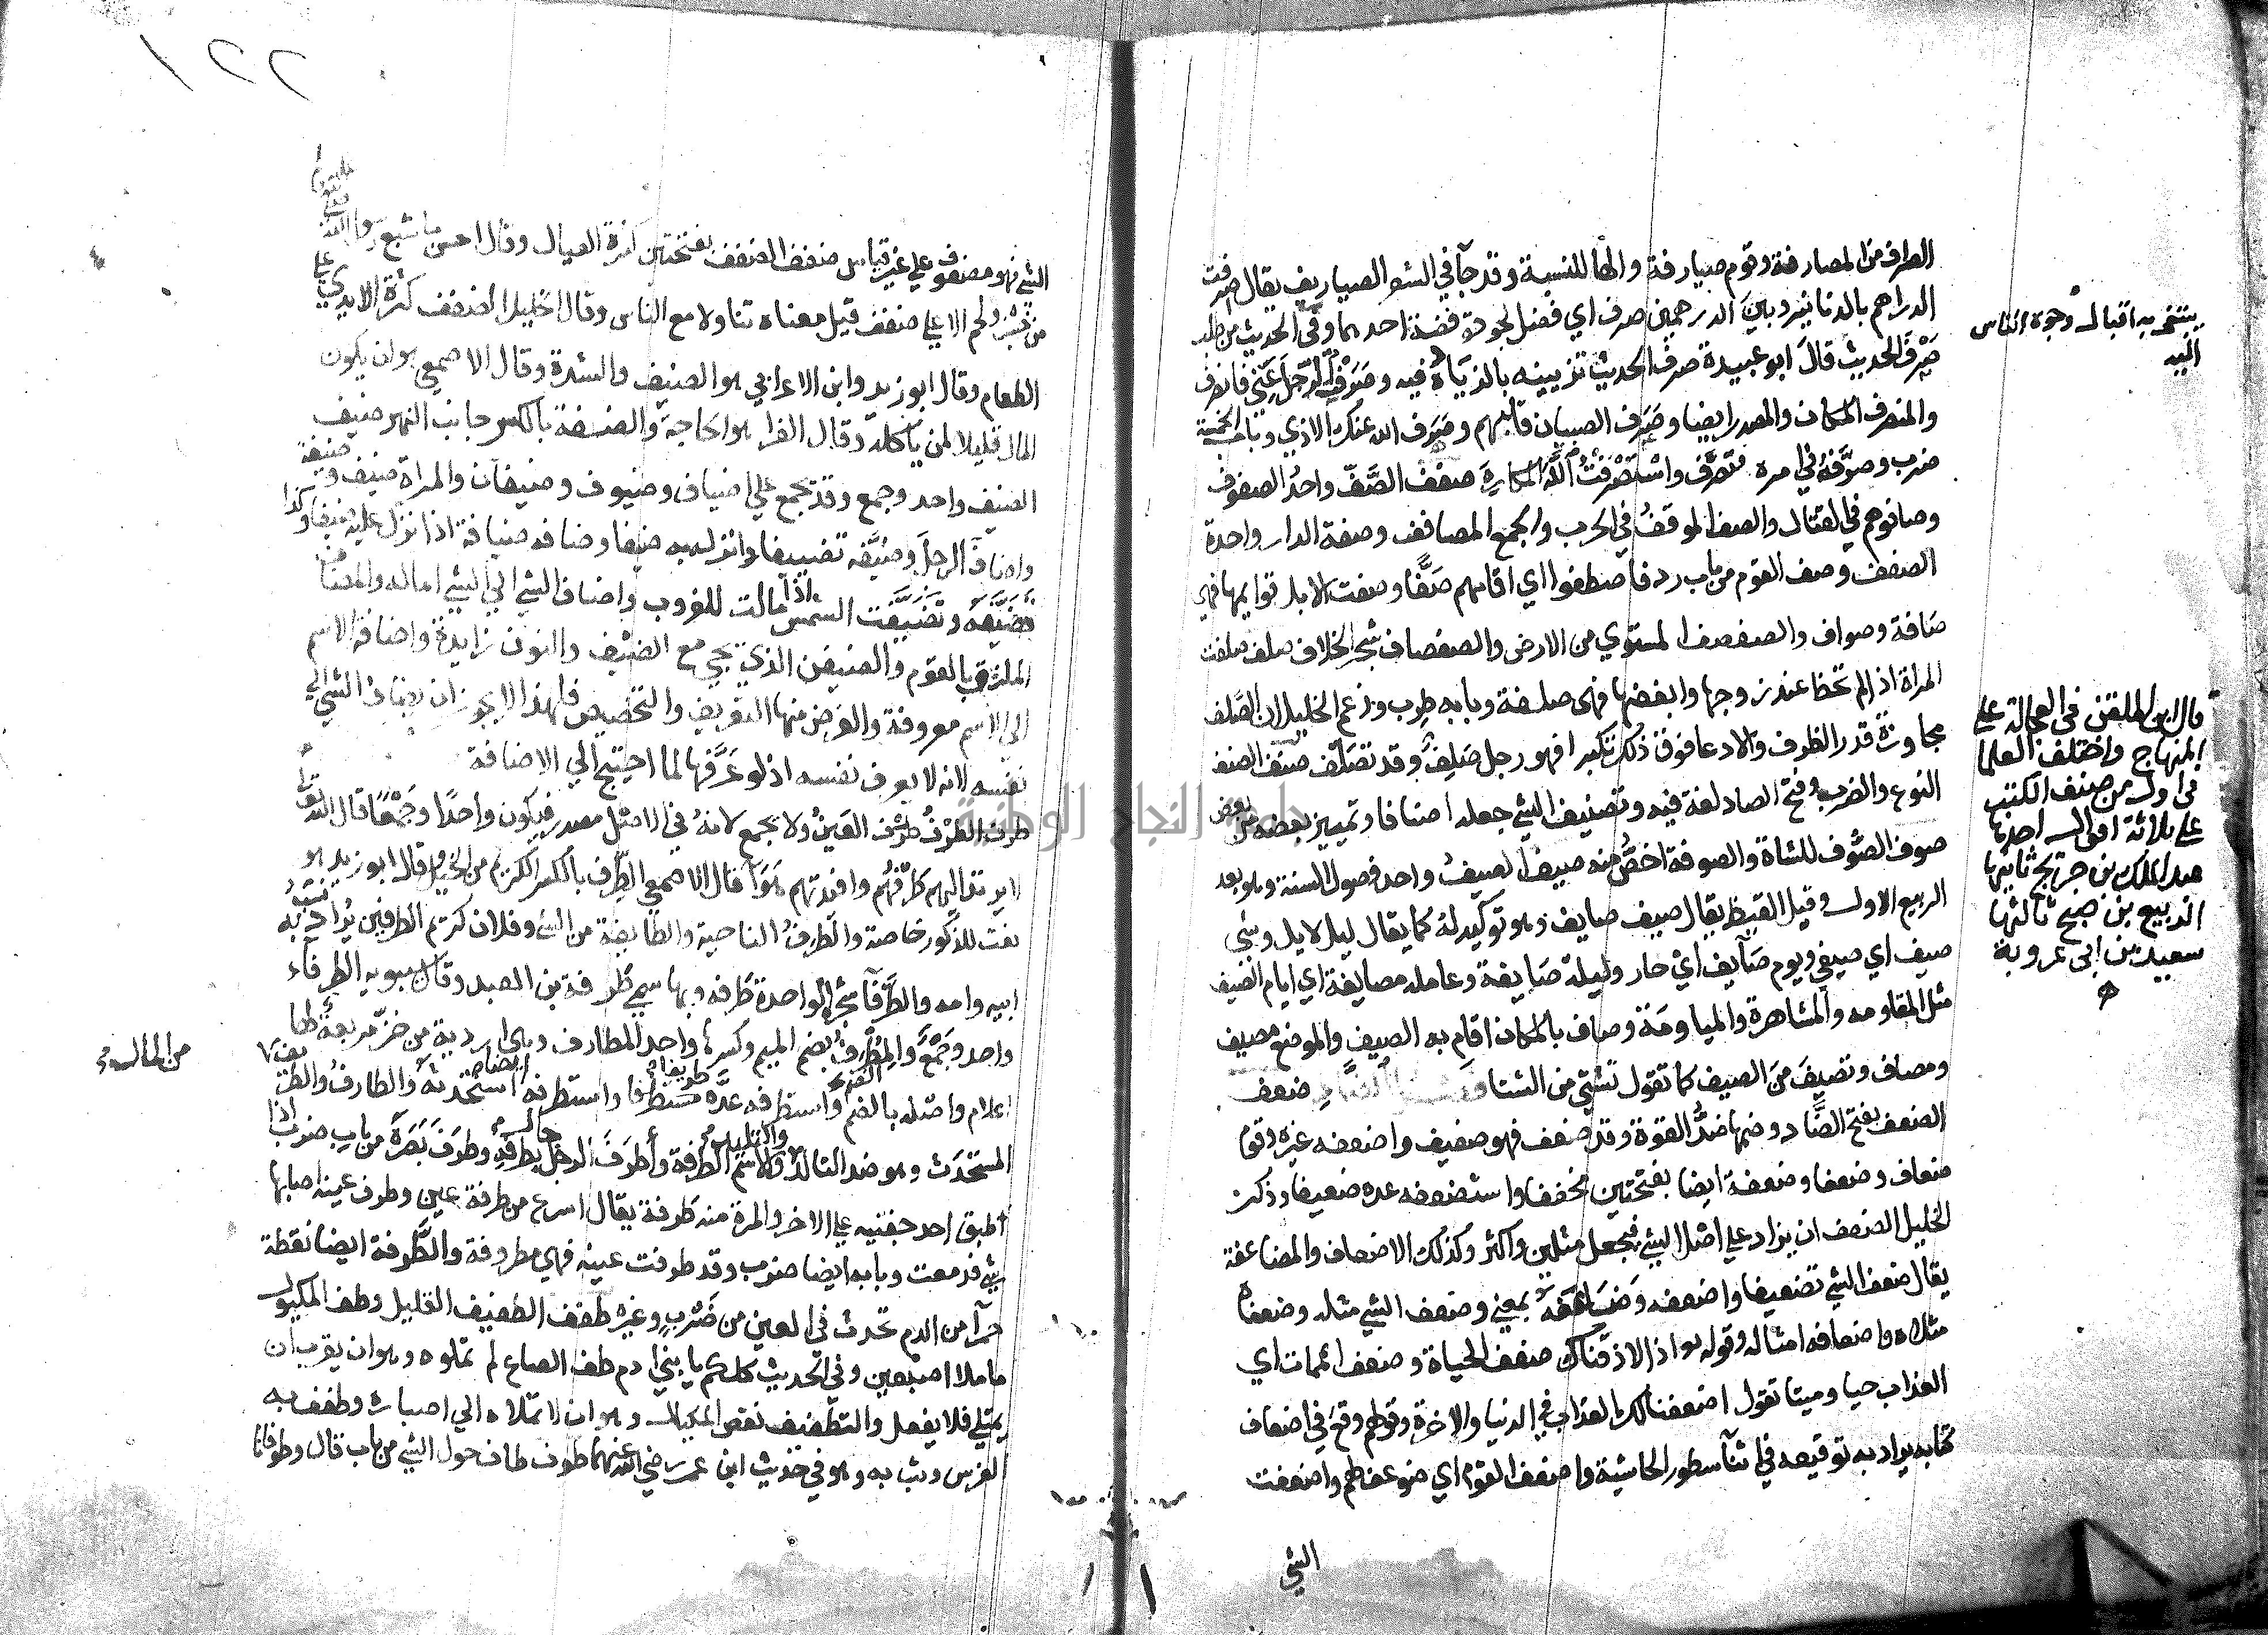 الصراف من المصارفة وقوم صيارفة والهاء للنسبة وقد جآ في الشعر الصياريف يقال صرفت
الدراهم بالدنانير وبين الدرهمين صرف اي فضل لجودة فضة احدهما وفي الحديث من طلب
صَرْفَ الحديث قال ابو عبيدة صرف الحديث تزيينه بالزيادة فيه وصَرَفْتُ الرّجل عَنّي فانصرف
والمنصرف المكان والمصدر ايضا وصَرَف الصبيان قلبهم وصَرَف الله عنك الاذي وباب الخمسة
ضرب وصرَّفه في امره فتصَرَّف واسْتَصْرَفْتُ اللَّهَ المكارِهَ صفف الصَّفّ واحدُ الصفوف
وصافوهم في القتال والصف الموقفُ في الحرب والجمع المصافف وصفة الدار واحدة
الصفف وصف القوم من باب رد فاصطفوا اي اقامهم صَفًّا وصفت الابل قوايمها فهي
صَافة وصواف والصفصف المستوي من الارض والصفصاف شجر الخلاف صلف صلفت
المراة اذا لم تحظ عند زوجها وابغضها فهي صلفة وبابه طرب وزعم الخليل ان الصَلف
مجاوزة قدر الظرف والادعا فوق ذلك تكبرا فهو رجل صَلِفٌ وقد تصَلّف صنف الصنف
النوع والضرب وفتح الصاد لغة فيه وتصنيف الشي جعله اصنافا وتمييز بعضه من بعض
صوف الصُّوف للشاة والصوفة اخصُّ منه صيف الصيفُ واحد فصول السنة وهو بعد
الربيع الاول وقيل القيظ يقال صيف صايف وهو توكيد له كما يقال ليل لايل وشي
صيف اي صيفي ويوم صَآيف اي حار وليلة صَايفة وعامله مصايفة اي ايام الصيف
مثل المقاومه والمشاهرة والمياومَة وصاف بالمكان اقام به الصيف والموضع مصيف
ومصاف وتصيفَ منَ الصيف كما تقول تشتي من الشتا ضعف
الضعف بفتح الضَّاد وضمها ضدُّ القوة وقد ضعف فهو ضعيف واضعفه غيره وقوم
ضعاف وضعفا وضعفة ايضا بفتحتين مخففا واستضعفه عده ضعيفا وذكر
الخليل الضعف ان يزاد علي اصْل الشي فيجعل مثلين واكثر وكذلك الاضعاف والمضاعفة
يقال ضعف الشي تضعيفا واضعفه وضَاعَفَهُ بمعني وضعف الشي مثله وضعفاه
مثلاه واضعافه امثاله وقوله اذا لاذقناك ضعف الحياة وضعف الممات اي
العذاب حيا وميتا تقول اضعفنا لك العذاب في الدنيا والاخرة وقولهم وقع في اضعاف
كتابه يراد به توقيعه في اثنآ سطور الحاشية واضعف القوم اي ضوعف لهم واضعفت
الشي
يبتغي به اقبال وُجوه الناس
اليه
قال ابن الملقن في العجالة علي
المنهاج واختلف العلما
في اول من صنف الكتب
علي ثلاثة اقوال احدها
عبد الملك بن جريج ثانيها
الربيع بن صبيح ثالثها
سعيد بن ابي عروبة
٢٢١
الشي فهو مضعوف علي غير قياس ضفف الضفف بفتحتين كثرة العيال وقال احسن ما شبع رسول الله
من خبز ولحم الا علي ضفف قيل معناه تناولا مع الناس وقال الخليل الضفف كثرة الايدي علي
الطعام وقال ابو زيد وابن الاعرابي هو الضيق والشدة وقال الاصمعي هو ان يكون
المال قليلا لمن يآكله وقال الفرا هو الحاجة والضفة بالكسر جانب النهر ضيف
الضيف واحد وجمع وقد يجمع علي اضياف وضيوف وضيفان والمراة ضيف وضيفة
واضافَ الرجلَ وضيَّفه تضييفا انزله به ضيفا وضافه ضيافة اذا نزل عليه ضيفا وكذا
تضَيَّفَهُ وتضَيَّفَت الشمس اذا مالت للغروب واضاف الشي الي الشي اماله والمضاف
الملزق بالقوم والضيفن الذي يجي مع الضيْف والنون زايدة واضافة الاسم
الي الاسم معروفة والغرض منها التعريف والتخصيص فلهذا لا يجوز ان يضاف الشي الي
نفسه لانه لا يعرف نفسه اذ لو عَرَّفها لما احتيج الي الاضافة
طرف الطرْفُ طرْف العَينْ ولا يجمع لانهُ في الاصْل مصدر فيكون واحدًا وجَمْعًا قال الله تعالي
لا يرتد اليهم طرْفُهُم وافئدتهم هَوَآ قال الاصمعي الطِرف بالكسر الكريم من الخيل وقال ابو زيد هو
نعت للذكور خاصة والطرفُ الناحية والطايفة من الشي وفلان كريم الطرفين يُراد به نسب
ابيه وامه والطرْفآ شجر الواحدة طَرفة وبها سمي طَرفة بن العبد وقال سيبويه الطرفآء
واحد وجَمْعٌ والمِطْرفُ بضم الميم وكسرها واحد المطارف وهي اردية من خزّ مربعةٌ لها
اعلام واصْله بالضم واستطرفه عدَّه طريفا واستطرفه استحدثهُ والطارفُ والطريف
المستحْدَث وهو ضد التالد والاسم الطرفة وأطرَفَ الرجلُ بطرفةٍ وطرَفَ بَصَرَه من باب ضرب اذا
اطبق احد جفنيه علي الاخر والمرة منه طَرفة يقال اسرع من طرفة عين وطرف عينه اصابها
بشي فدمعت وبابه ايضا ضرب وقد طرفت عينه فهي مطروفة والطَّرفة ايضا نقطة
حمرآ من الدم تحدث في العين من ضَرْبٍ وغيره طفف الطفيف القليل وطف المكيول
ما ملا اصْبعين وفي الحديث كلكم يا بني ادم طف الصاع لم تملوه وهو ان يقرب ان
يمتلي فلا يفعل والتطّفيف نقص المكيال وهو ان لا تملاه الي اصباره وطفف به
الفرس وثب به وهو في حديث ابن عمر رضي الله عنهما طوف طاف حول الشي من باب قال وطوفانا
من المال